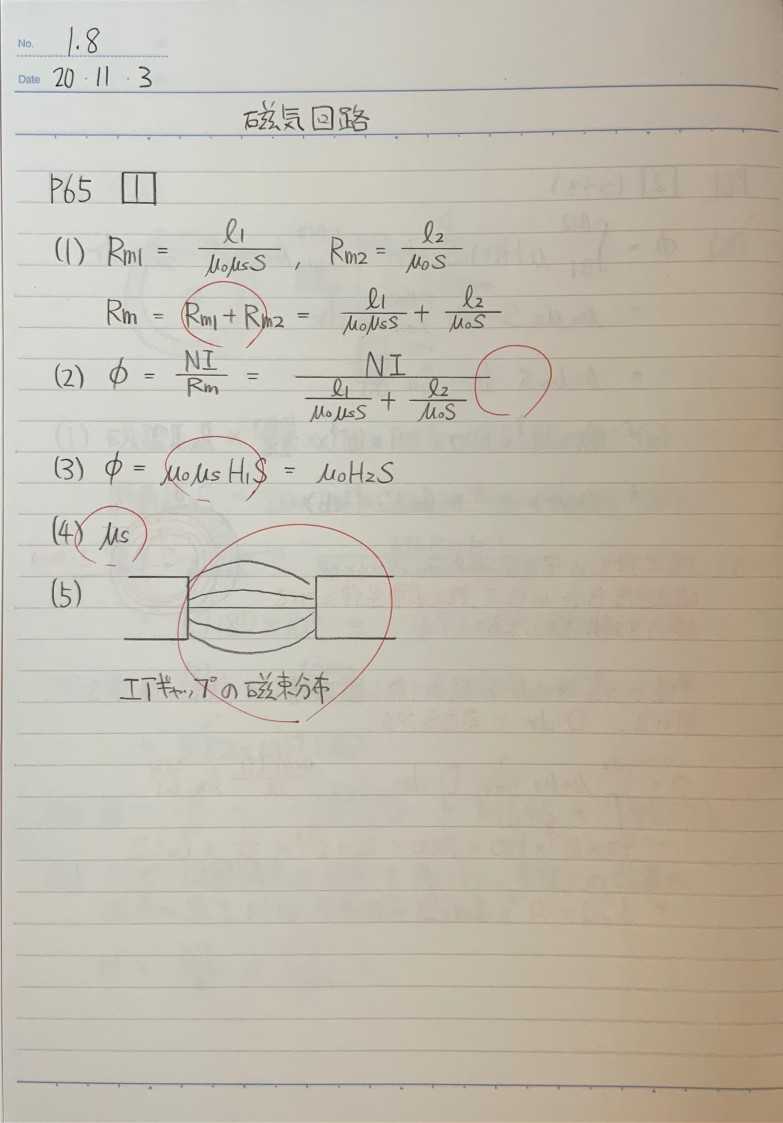 No. 1.8
Date 20・11・3
磁気回路
P65 1
(1) Rm1 = l1/μ0μsS , Rm2 = l2/μ0S
Rm = Rm1 + Rm2 = l1/μ0μsS + l2/μ0S
(2) φ = NI/Rm = NI/(l1/μ0μsS + l2/μ0S)
(3) φ = μ0μsH1S = μ0H2S
(4) μs
(5)
エアギャップの磁束分布